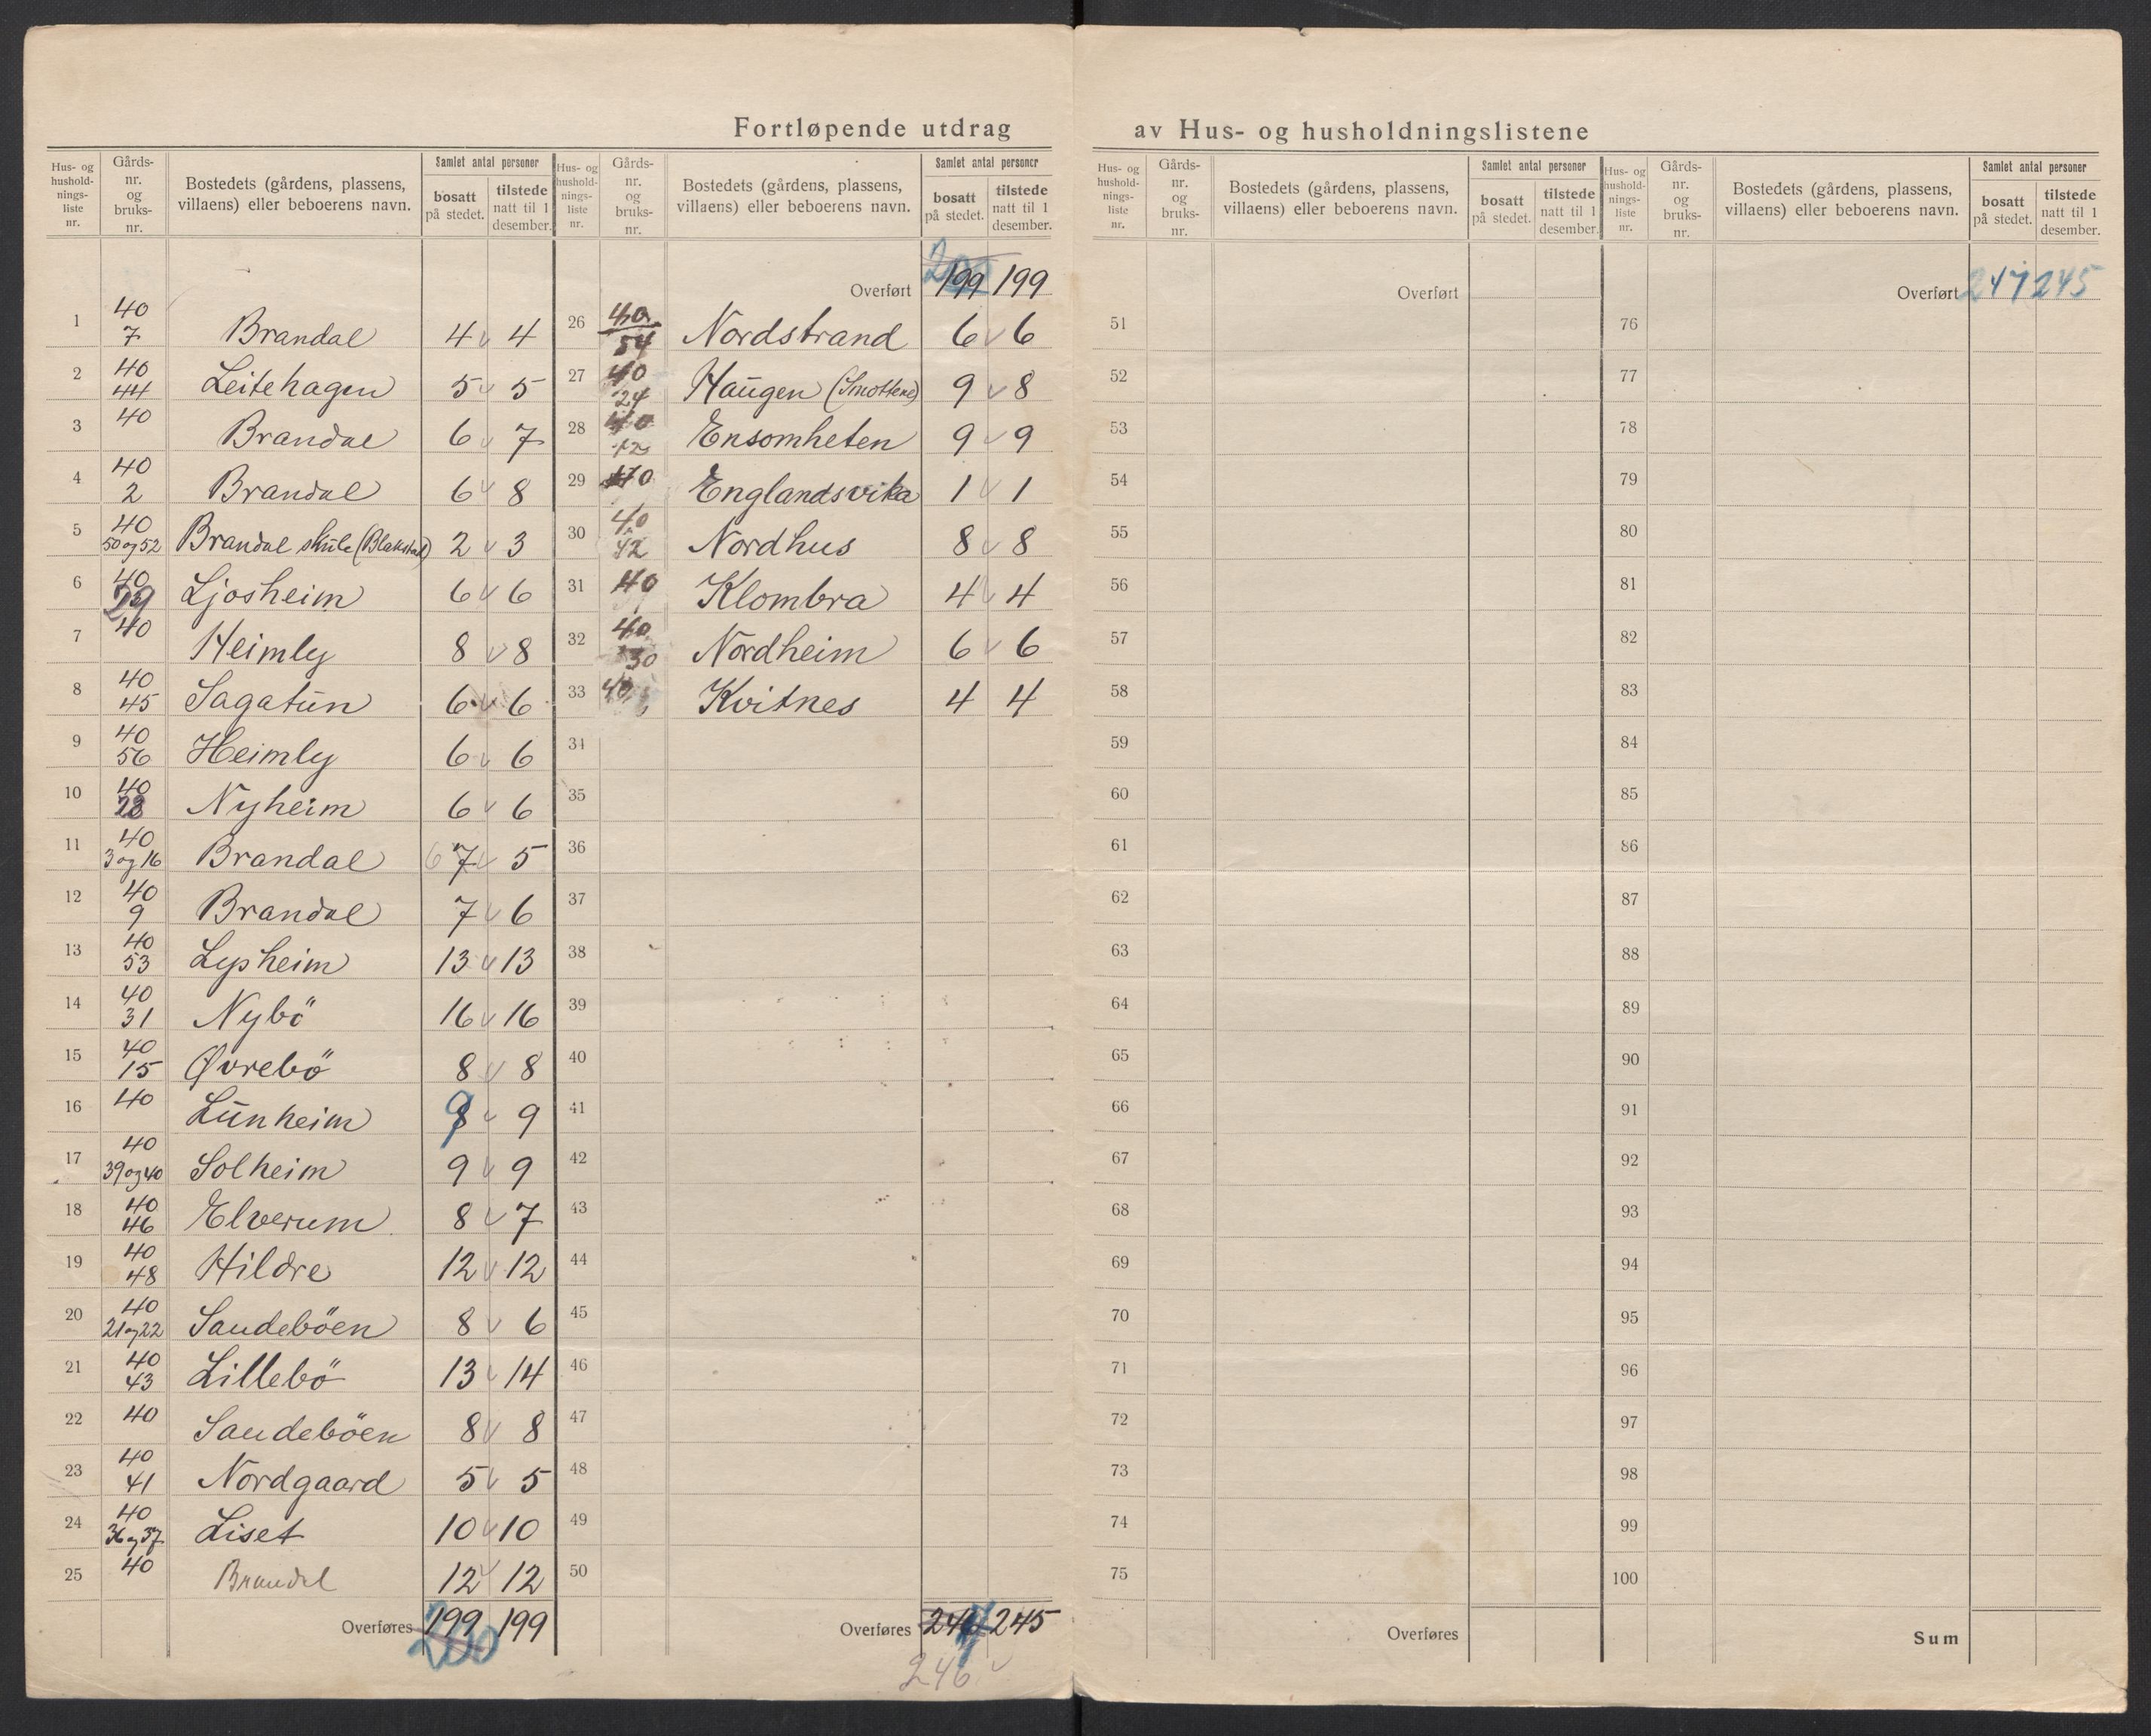 Fortløpende utdrag av Hus- og husholdningslistene
Hus- og hushold-nings-liste nr. Gårds-nr. og bruks-nr. Bostedets (gårdens, plassens, villaens) eller beboerens navn. Samlet antal personer bosatt på stedet. tilstede natt til 1 desember.
1 40 7 Brandal 4 v 4
2 40 44 Leitehagen 5 v 5
3 40 Brandal 6 v 7
4 40 2 Brandal 6 v 8
5 40 50 og 52 Brandal skule (Blakstad) 2 v 3
6 40 29 Ljosheim 6 v 6
7 40 Heimly 8 v 8
8 40 45 Sagatun 6 v 6
9 40 56 Heimly 6 v 6
10 40 28 Nyheim 6 v 6
11 40 3 og 16 Brandal 6 7 v 5
12 40 9 Brandal 7 v 6
13 40 53 Lysheim 13 v 13
14 40 31 Nybö 16 v 16
15 40 15 Øvrebö 8 v 8
16 40 Lunheim 9 v 9
17 40 39 og 40 Solheim 9 v 9
18 40 46 Elverum 8 v 7
19 40 48 Hildre 12 v 12
20 40 21 og 22 Sandeböen 8 v 6
21 40 43 Lillebö 13 v 14
22 40 Sandeböen 8 v 8
23 40 41 Nordgaard 5 v 5
24 40 36 og 37 Liset 10 v 10
25 40 Brandal 12 v 12
Overføres 199 199
200
Hus- og hushold-nings-liste nr. Gårds-nr. og bruks-nr. Bostedets (gårdens, plassens, villaens) eller beboerens navn. Samlet antal personer bosatt på stedet. tilstede natt til 1 desember.
200
Overført 199 199
26 40 54 Nordstrand 6 v 6
27 40 24 Haugen (Smottene) 9 v 8
28 40 12 Ensomheten 9 v 9
29 40 Englandsvika 1 v 1
30 40 42 Nordhus 8 v 8
31 40 Klombra 4 v 4
32 40 30 Nordheim 6 v 6
33 40 Kvitnes 4 4
34
35
36
37
38
39
40
41
42
43
44
45
46
47
48
49
50
Overføres 247 245
246 v
Hus- og hushold-nings-liste nr. Gårds-nr. og bruks-nr. Bostedets (gårdens, plassens, villaens) eller beboerens navn. Samlet antal personer bosatt på stedet. tilstede natt til 1 desember.
Overført
51
52
53
54
55
56
57
58
59
60
61
62
63
64
65
66
67
68
69
70
71
72
73
74
75
Overføres
Hus- og hushold-nings-liste nr. Gårds-nr. og bruks-nr. Bostedets (gårdens, plassens, villaens) eller beboerens navn. Samlet antal personer bosatt på stedet. tilstede natt til 1 desember.
Overført 247 245
76
77
78
79
80
81
82
83
84
85
86
87
88
89
90
91
92
93
94
95
96
97
98
99
100
Sum